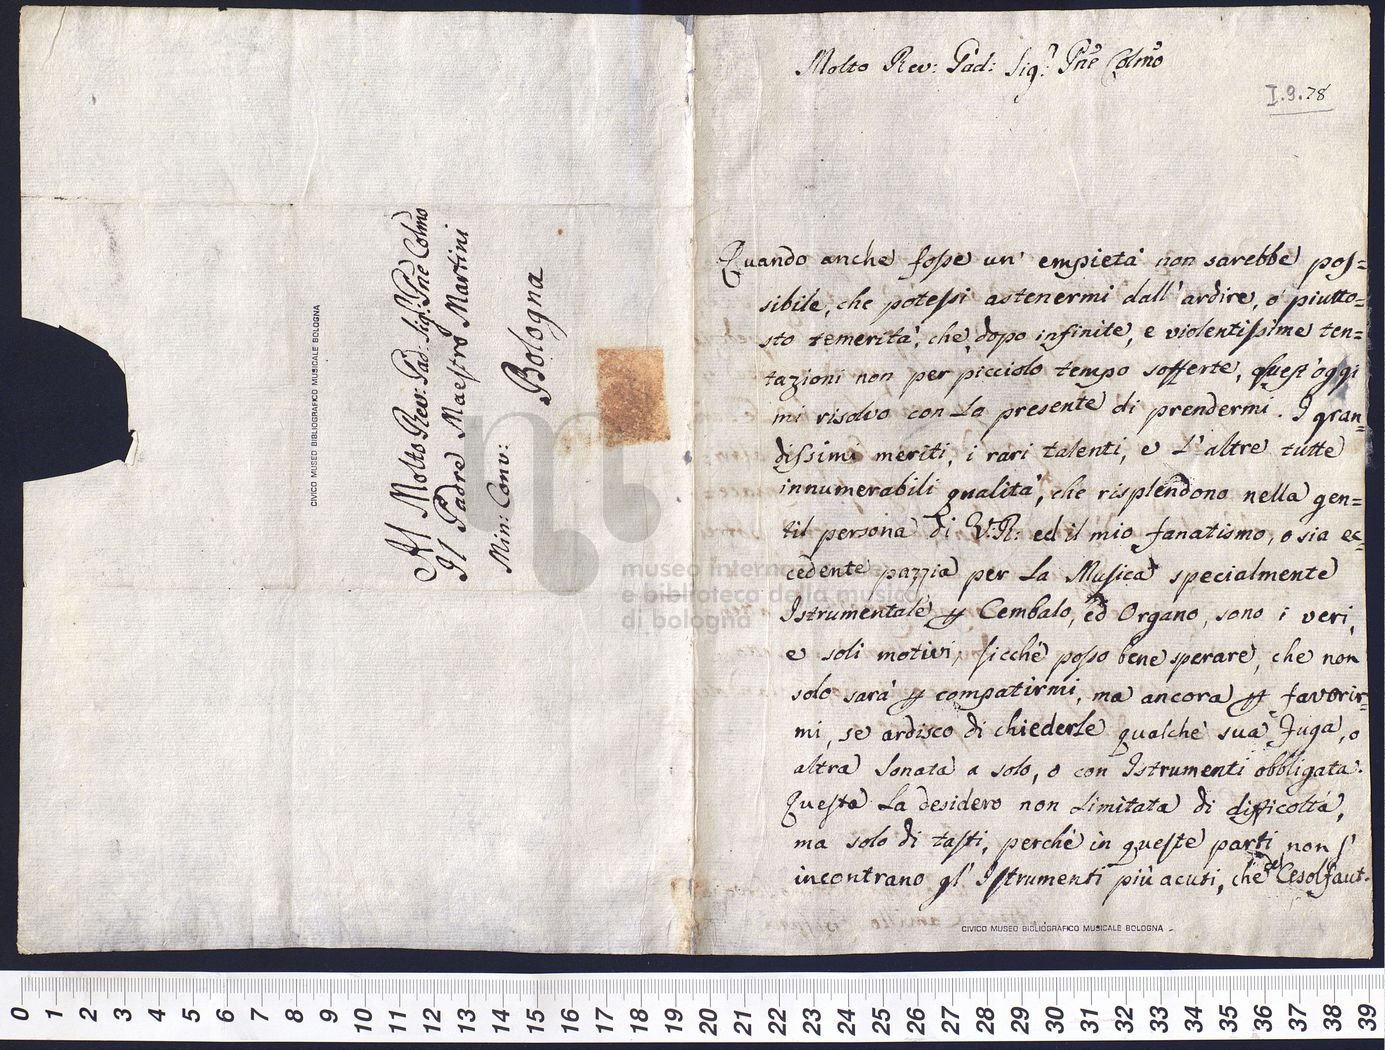 Al Molto Rev: Pad: Sig.r Pñe Colmo
Il Padre Maestro Martini
Min: Conv:
Bologna
CIVICO MUSEO BIBLIOGRAFICO MUSICALE BOLOGNA
Molto Rev: Pad: Sig.r Pñe Colmo
I.9.78
Quando anche fosse un' empietà non sarebbe pos=
sibile, che potessi astenermi dall' ardire, o piutto=
sto temerità, che dopo infinite, e violentissime ten=
tazioni non per picciolo tempo sofferte, quest' oggi
mi risolvo con La presente di prendermi. I gran=
dissimi meriti, i rari talenti, e L'altre tutte
innumerabili qualità, che risplendono nella gen=
til persona di V.R: ed il mio fanatismo, o sia ec=
cedente pazzia per La Musica specialmente
Istrumentale p Cembalo, ed Organo, sono i veri,
e soli motivi, sicchè posso bene sperare, che non
solo sarà p compatirmi, ma ancora p favorir=
mi, se ardisco di chiederle qualche sua Fuga, o
altra Sonata a solo, o con Istrumenti obbligata.
Questa La desidero non Limitata di difficoltà,
ma solo di tasti, perchè in queste parti non s'
incontrano gl' Istrumenti più acuti, che del Cesolfaut.
CIVICO MUSEO BIBLIOGRAFICO MUSICALE BOLOGNA
museo internazionale
e biblioteca della musica
di bologna
0 1 2 3 4 5 6 7 8 9 10 11 12 13 14 15 16 17 18 19 20 21 22 23 24 25 26 27 28 29 30 31 32 33 34 35 36 37 38 39